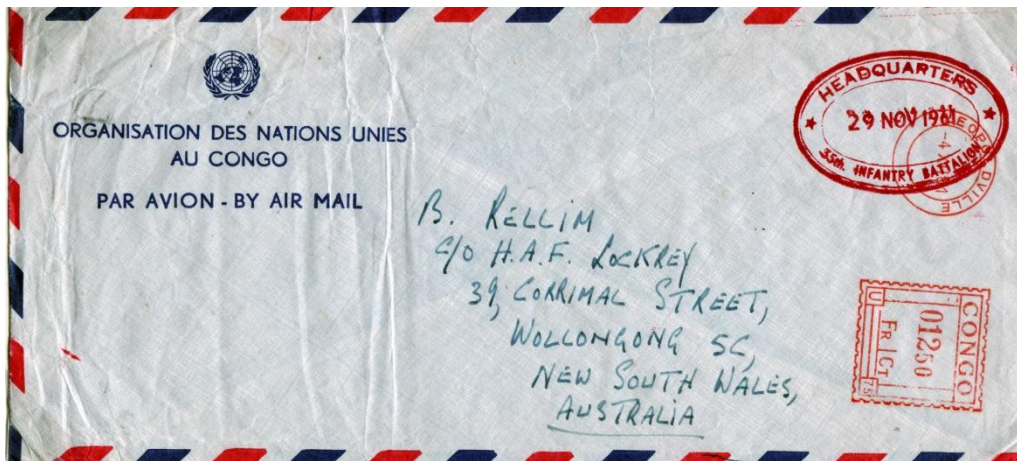 ORGANISATION DES NATIONS UNIES
AU CONGO
PAR AVION - BY AIR MAIL
HEADQUARTERS
29 NOV 1961
35th. INFANTRY BATTALION
B. RELLIM
C/O H.A.F. LOCKREY
39, CORRIMAL STREET,
WOLLONGONG 5C,
NEW SOUTH WALES,
AUSTRALIA
CONGO
01250
FR | CT
U
75